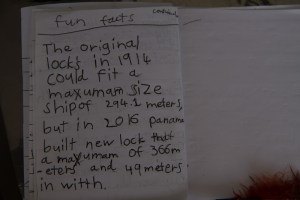 fun facts
The original
locks in 1914
could fit a
maxumam size
ship of 294.1 meters,
but in 2016 panama
built new lock that
a maxumam of 366m
-eters and 49 meters
in witth.